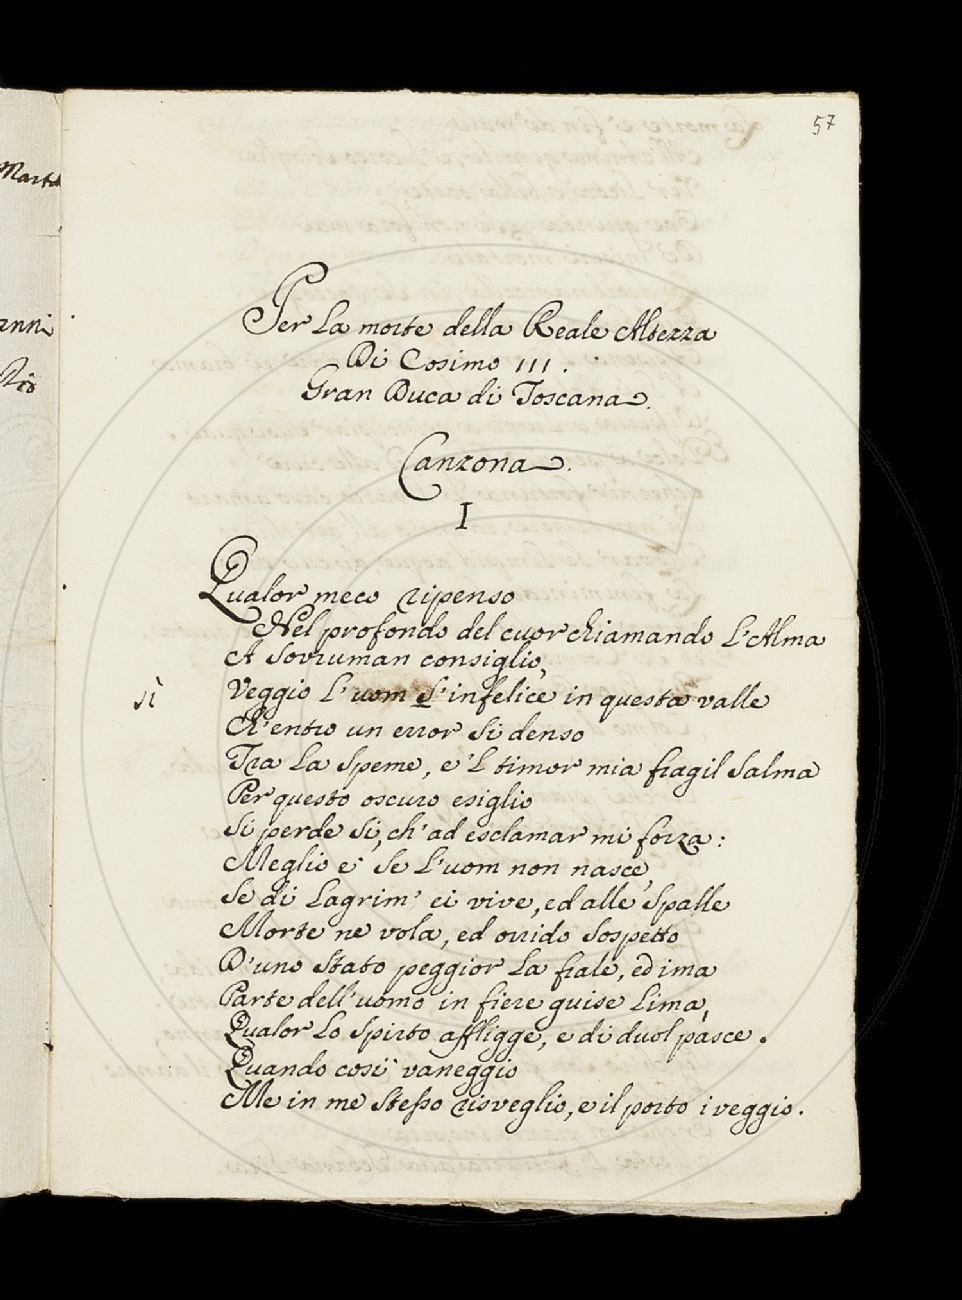 57
Per la morte della Reale Altezza
Di Cosimo III.
Gran Duca di Toscana.
Canzona.
I
Qualor meco ripenso
Nel profondo del cuor chiamando l'Alma
A sovruman consiglio,
sì
Veggio l'uom s'infelice in questa valle
Ch'entro un error si denso
Tra la speme, e 'l timor mia fragil salma
Per questo oscuro esiglio
Si perde si, ch'ad esclamar mi forza:
Meglio e' se l'uom non nasce,
Se di lagrim' ei vive, ed alle spalle
Morte ne vola, ed orrido sospetto
D'uno stato peggior la frale, ed ima
Parte dell'uomo in fiere guise lima,
Qualor lo spirto affligge, e di duol pasce.
Quando così vaneggio
Me in me stesso risveglio, e il porto i veggio.